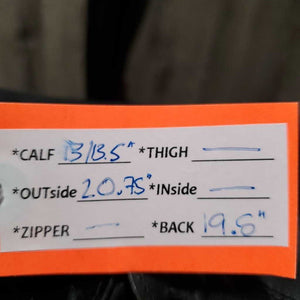 *CALF 13/13.5" *THIGH —
*OUTside 20.75" *INside —
*ZIPPER — *BACK 19.5"